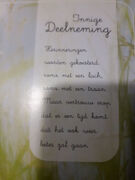 Innige
Deelneming
Herinneringen
worden gekoesterd
soms met een lach,
soms met een traan.
Maar vertrouw erop
dat er een tijd komt
dat het ook weer
beter zal gaan.